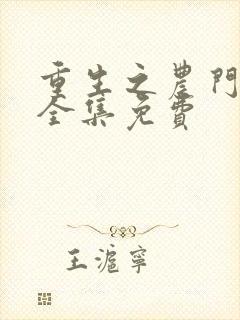 重生之農門
全集免費
王滬寧